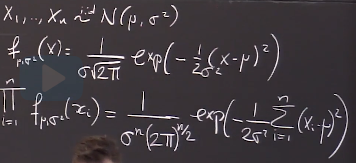 X₁,..,Xₙ i.i.d ~ N(μ,σ²)
f_{μ,σ²}(x) = 1/(σ√2π) exp(-1/(2σ²) (x-μ)²)
∏_{i=1}^{n} f_{μ,σ²}(xᵢ) = 1/(σⁿ(2π)^{n/2}) exp(-1/(2σ²) ∑_{i=1}^{n} (xᵢ-μ)²)